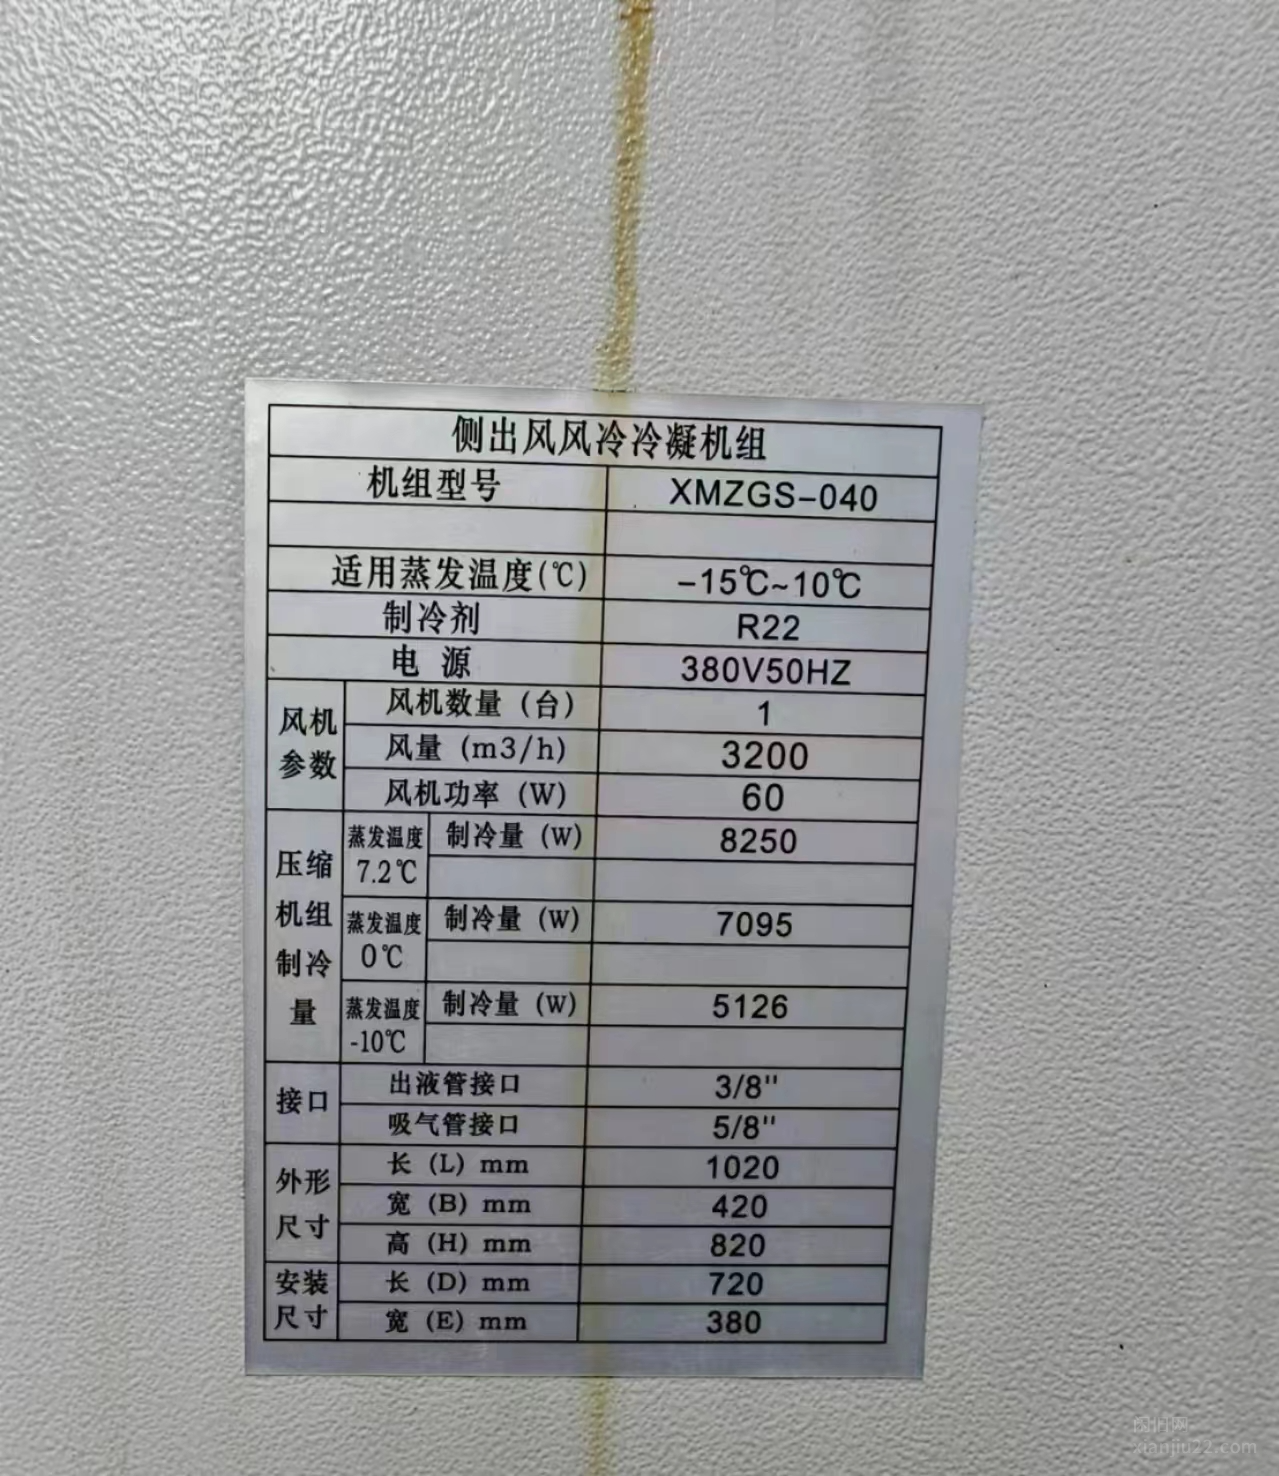 侧出风风冷冷凝机组
机组型号 XMZGS-040
适用蒸发温度(℃) -15℃~10℃
制冷剂 R22
电 源 380V50HZ
风机参数 风机数量 (台) 1
风量 (m3/h) 3200
风机功率 (W) 60
压缩机组制冷量 蒸发温度 7.2℃ 制冷量 (W) 8250
蒸发温度 0℃ 制冷量 (W) 7095
蒸发温度 -10℃ 制冷量 (W) 5126
接口 出液管接口 3/8"
吸气管接口 5/8"
外形尺寸 长 (L) mm 1020
宽 (B) mm 420
高 (H) mm 820
安装尺寸 长 (D) mm 720
宽 (E) mm 380
闲旧网
xianjiu22.com